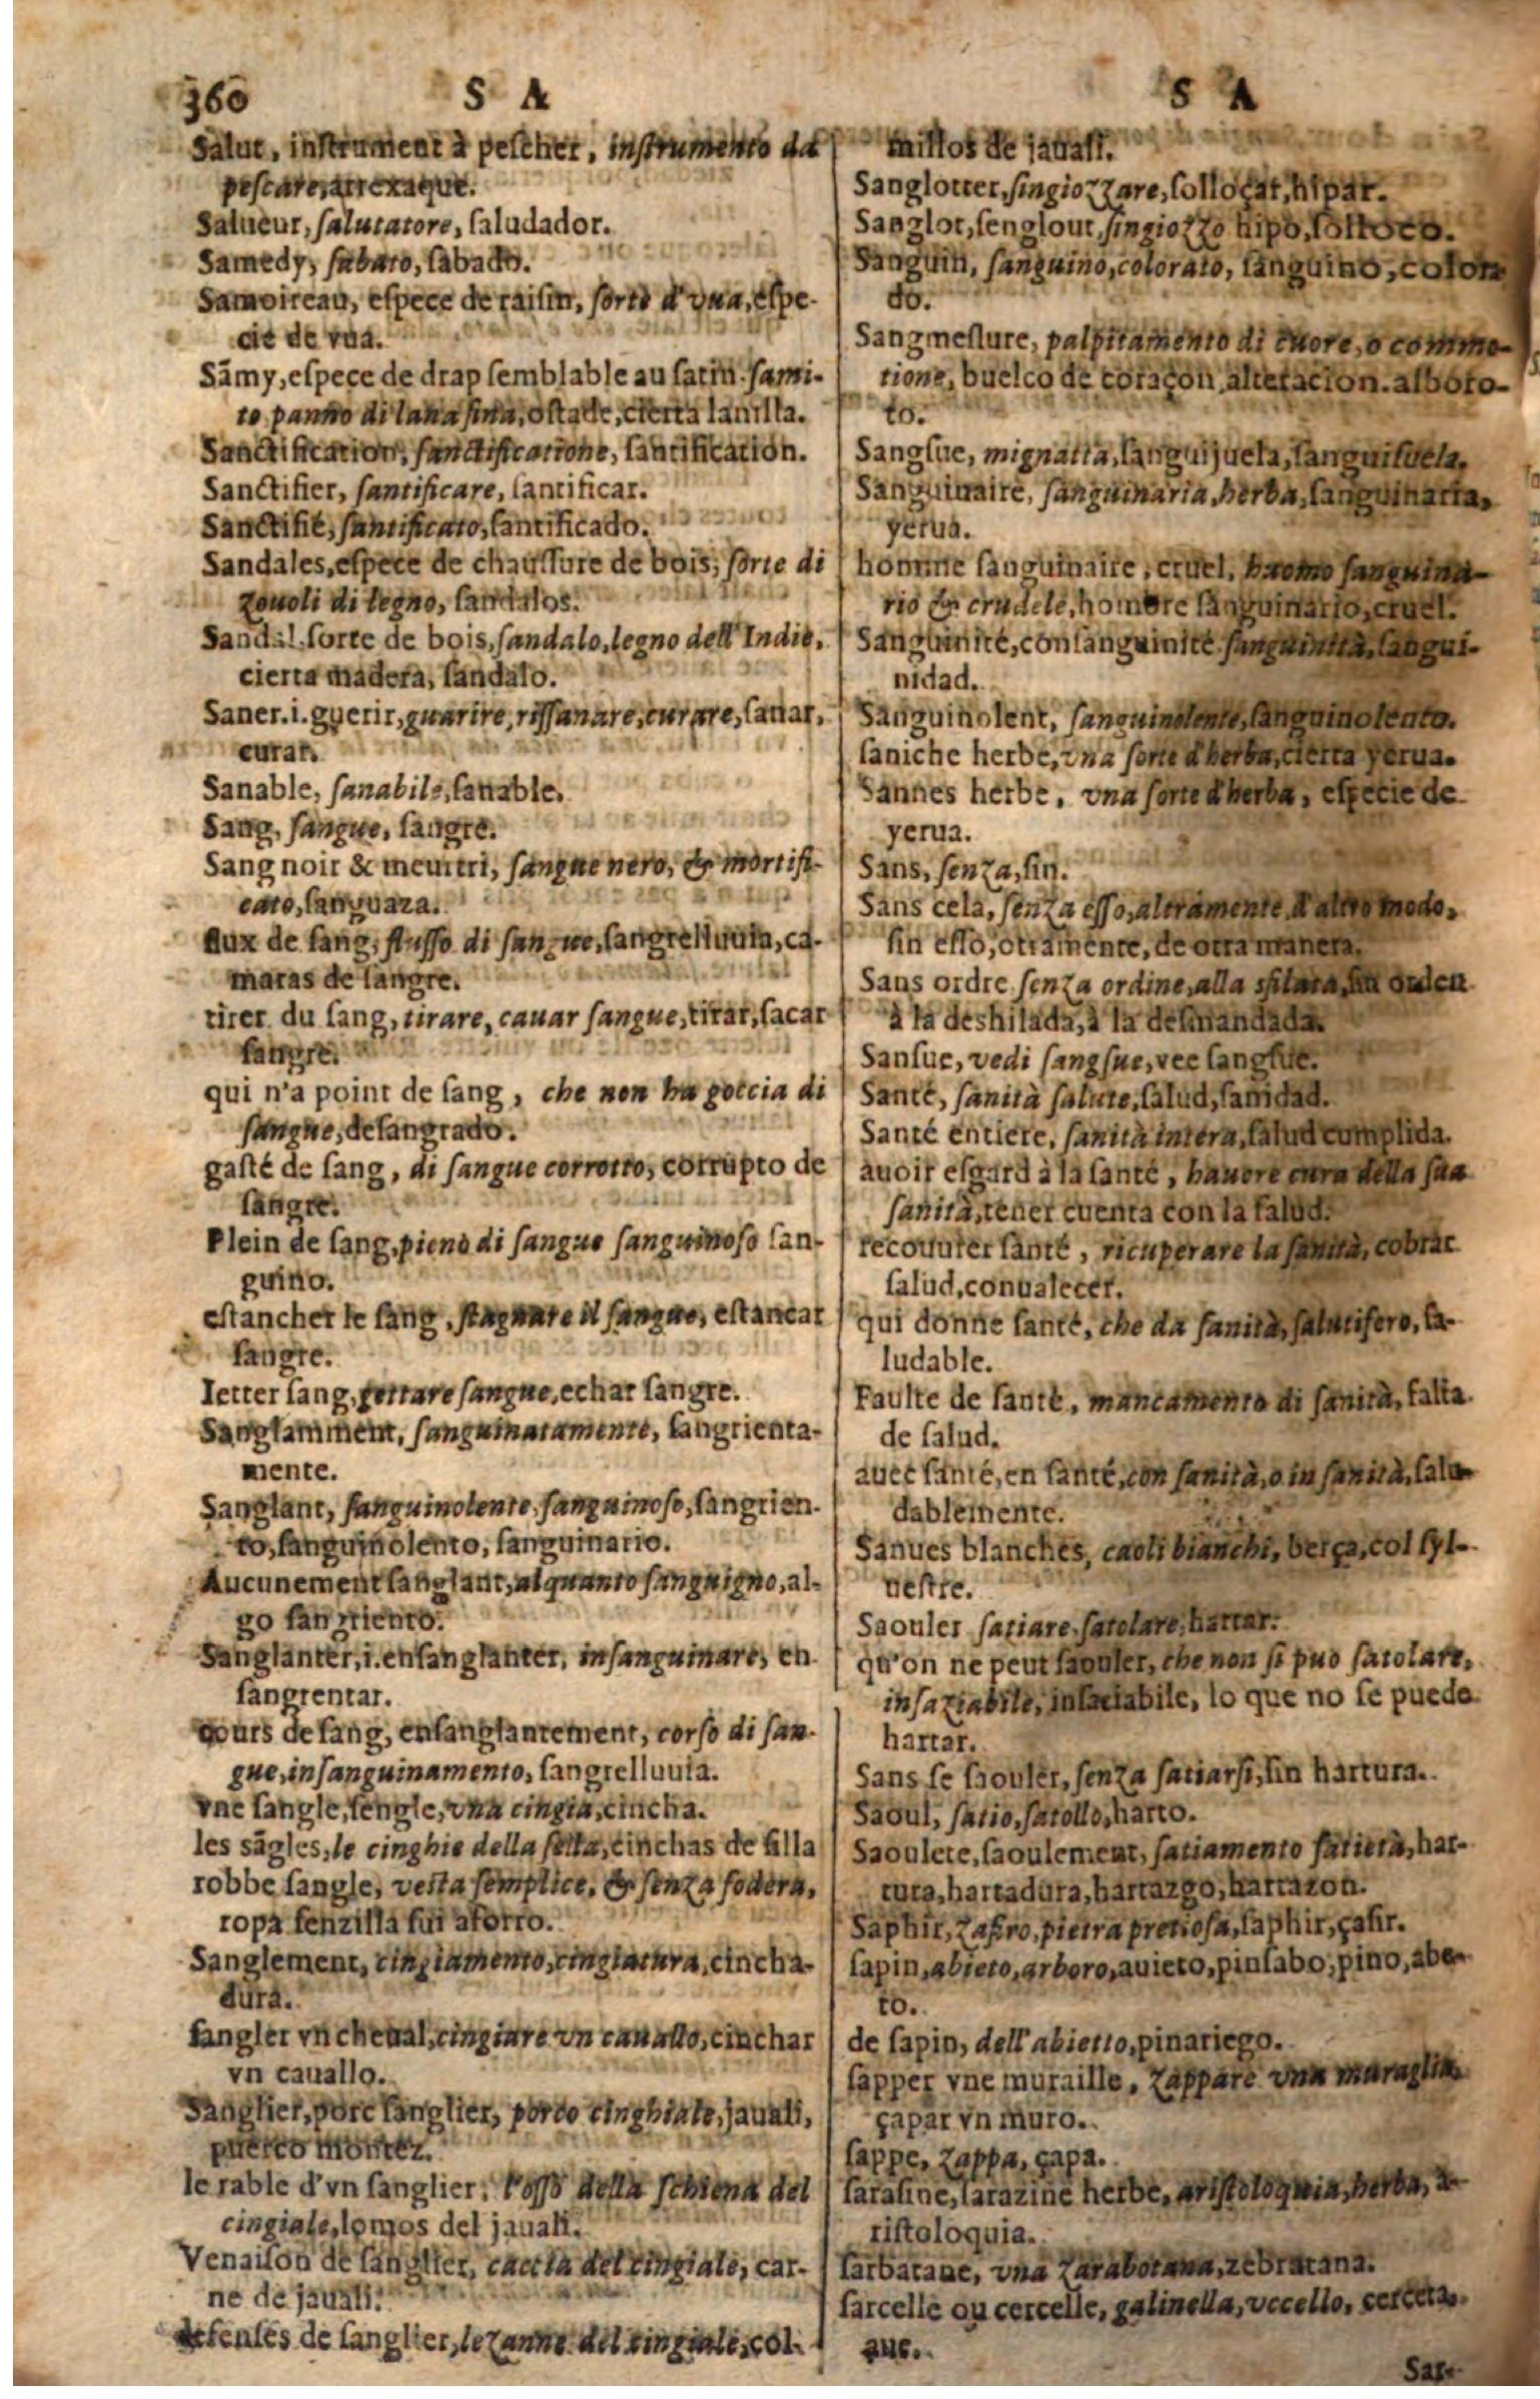 360 S A
Salut, inſtrument à peſcher, inſtrumento da
peſcare, arrexaque.
Salueur, ſalutatore, ſaludador.
Samedy, ſabato, ſabado.
Samoireau, eſpece de raiſin, ſorte d'vua, eſpe-
cie de vua.
Sãmy, eſpece de drap ſemblable au ſatin. ſami-
to panno di lana fina, oſtade, cierta lanilla.
Sanctification, ſanctificatione, ſantification.
Sanctifier, ſantificare, ſantificar.
Sanctifié, ſantificato, ſantificado.
Sandales, eſpece de chauſſure de bois, ſorte di
zouoli di legno, ſandalos.
Sandal ſorte de bois, ſandalo, legno dell'Indie,
cierta madera, ſandalo.
Saner. i. guerir, guarire, riſſanare, curare, ſanar,
curar.
Sanable, ſanabile, ſanable.
Sang, ſangue, ſangre.
Sang noir & meurtri, ſangue nero, & mortifi-
cato, ſanguaza.
flux de ſang, fluſſo di ſangue, ſangrelluuia, ca-
maras de ſangre.
tirer du ſang, tirare, cauar ſangue, tirar, ſacar
ſangre.
qui n'a point de ſang, che non ha goccia di
ſangue, deſangrado.
gaſté de ſang, di ſangue corrotto, corrupto de
ſangre.
Plein de ſang, pieno di ſangue ſanguinoſo ſan-
guino.
eſtancher le ſang, ſtagnare il ſangue, eſtancar
ſangre.
Ietter ſang, gettare ſangue, echar ſangre.
Sanglamment, ſanguinatamente, ſangrienta-
mente.
Sanglant, ſanguinolente, ſanguinoſo, ſangrien-
to, ſanguinolento, ſanguinario.
Aucunement ſanglant, alquanto ſanguigno, al-
go ſangriento.
Sanglanter, i. enſanglanter, inſanguinare, en
ſangrentar.
cours de ſang, enſanglantement, corſo di ſan-
gue, inſanguinamento, ſangrelluuia.
vne ſangle, ſengle, vna cingia, cincha.
les sãgles, le cinghie della ſella, cinchas de ſilla
robbe ſangle, veſta ſemplice, & ſenza fodera,
ropa ſenzilla ſin aforro.
Sanglement, cingiamento, cingiatura, cincha-
dura.
ſangler vn cheual, cingiare vn cauallo, cinchar
vn cauallo.
Sanglier, porc ſanglier, porco cinghiale, jauali,
puerco montez.
le rable d'vn ſanglier, l'oſſo della ſchiena del
cingiale, lomos del jauali.
Venaiſon de ſanglier, caccia del cingiale, car-
ne de jauali.
defenſes de ſanglier, le zanne del cingiale, col-
S A
millos de jauali.
Sanglotter, ſingiozzare, ſolloçar, hipar.
Sanglot, ſenglout, ſingiozzo hipo, ſolloço.
Sanguin, ſanguino, colorato, ſanguino, colora
do.
Sangmeſlure, palpitamento di cuore, o commo-
tione, buelco de coraçon, alteracion. alboro-
to.
Sangſue, mignatta, ſanguijuela, ſanguiſuela.
Sanguinaire, ſanguinaria, herba, ſanguinaria,
yerua.
homme ſanguinaire, cruel, huomo ſanguina-
rio & crudele, hombre ſanguinario, cruel.
Sanguinité, conſanguinité ſanguinità, ſangui-
nidad.
Sanguinolent, ſanguinolente, ſanguinolento.
ſaniche herbe, vna ſorte d'herba, cierta yerua.
Sannes herbe, vna ſorte d'herba, eſpecie de
yerua.
Sans, ſenza, ſin.
Sans cela, ſenza eſſo, altramente, d'altro modo,
ſin eſſo, otramente, de otra manera.
Sans ordre ſenza ordine, alla sfilata, ſin orden
à la deshilada, à la deſmandada.
Sanſue, vedi ſangſue, vee ſangſue.
Santé, ſanità ſalute, ſalud, ſanidad.
Santé entiere, ſanità intera, ſalud cumplida.
auoir eſgard à la ſanté, hauere cura della ſua
ſanità, tener cuenta con la ſalud.
recouurer ſanté, ricuperare la ſanità, cobrar
ſalud, conualecer.
qui donne ſanté, che da ſanità, ſalutifero, ſa-
ludable.
Faulte de ſanté, mancamento di ſanità, falta
de ſalud.
auec ſanté, en ſanté, con ſanità, o in ſanità, ſalu-
dablemente.
Sanues blanches, caoli bianchi, berça, col ſyl-
ueſtre.
Saouler ſatiare, ſatolare, hartar.
qu'on ne peut ſaouler, che non ſi puo ſatolare,
inſaziabile, inſaciabile, lo que no ſe puede
hartar.
Sans ſe ſaouler, ſenza ſatiarſi, ſin hartura.
Saoul, ſatio, ſatollo, harto.
Saouleté, ſaoulement, ſatiamento ſatietà, har-
tura, hartadura, hartazgo, hartazon.
Saphir, zafiro, pietra pretioſa, ſaphir, çafir.
ſapin, abieto, arboro, auieto, pinſabo, pino, abe-
to.
de ſapin, dell'abietto, pinariego.
ſapper vne muraille, zappare vna muraglia,
çapar vn muro.
ſappe, zappa, çapa.
ſaraſine, ſarazine herbe, ariſtoloquia, herba, a-
riſtoloquia.
ſarbatane, vna zarabotana, zebratana.
ſarcelle ou cercelle, galinella, vccello, cerceta,
aue.
Sar-